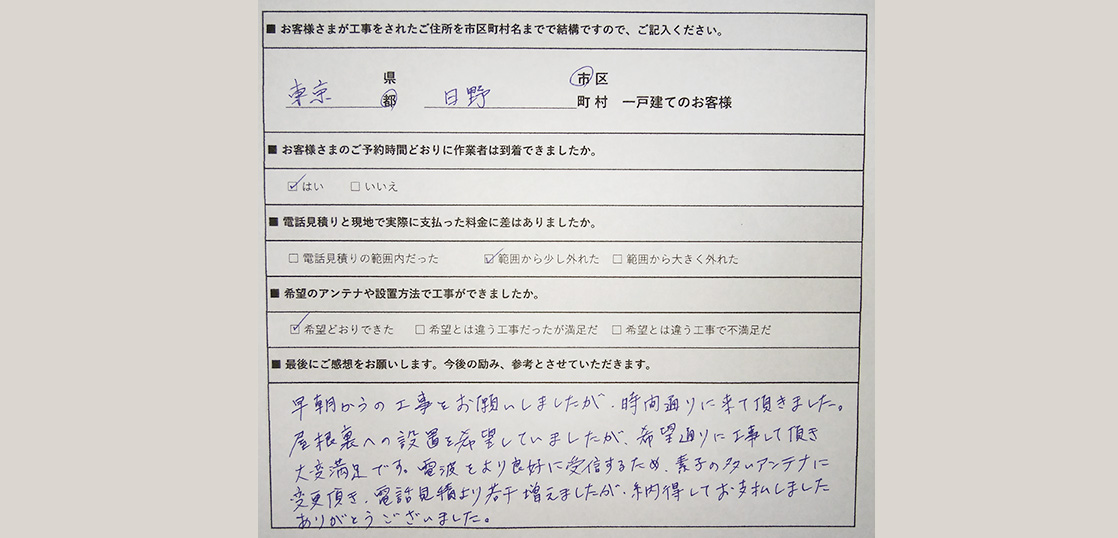 ■ お客様さまが工事をされたご住所を市区町村名までで結構ですので、ご記入ください。
県 市 区
東京 都 日野 町 村 一戸建てのお客様
■ お客様さまのご予約時間どおりに作業者は到着できましたか。
☑ はい □ いいえ
■ 電話見積りと現地で実際に支払った料金に差はありましたか。
□ 電話見積りの範囲内だった ☑ 範囲から少し外れた □ 範囲から大きく外れた
■ 希望のアンテナや設置方法で工事ができましたか。
☑ 希望どおりできた □ 希望とは違う工事だったが満足だ □ 希望とは違う工事で不満足だ
■ 最後にご感想をお願いします。今後の励み、参考とさせていただきます。
早朝からの工事をお願いしましたが、時間通りに来て頂きました。
屋根裏への設置を希望していましたが、希望通りに工事して頂き
大変満足です。電波をより良好に受信するため、素子の多いアンテナに
変更頂き、電話見積より若干増えましたが、納得してお支払しました
ありがとうございました。